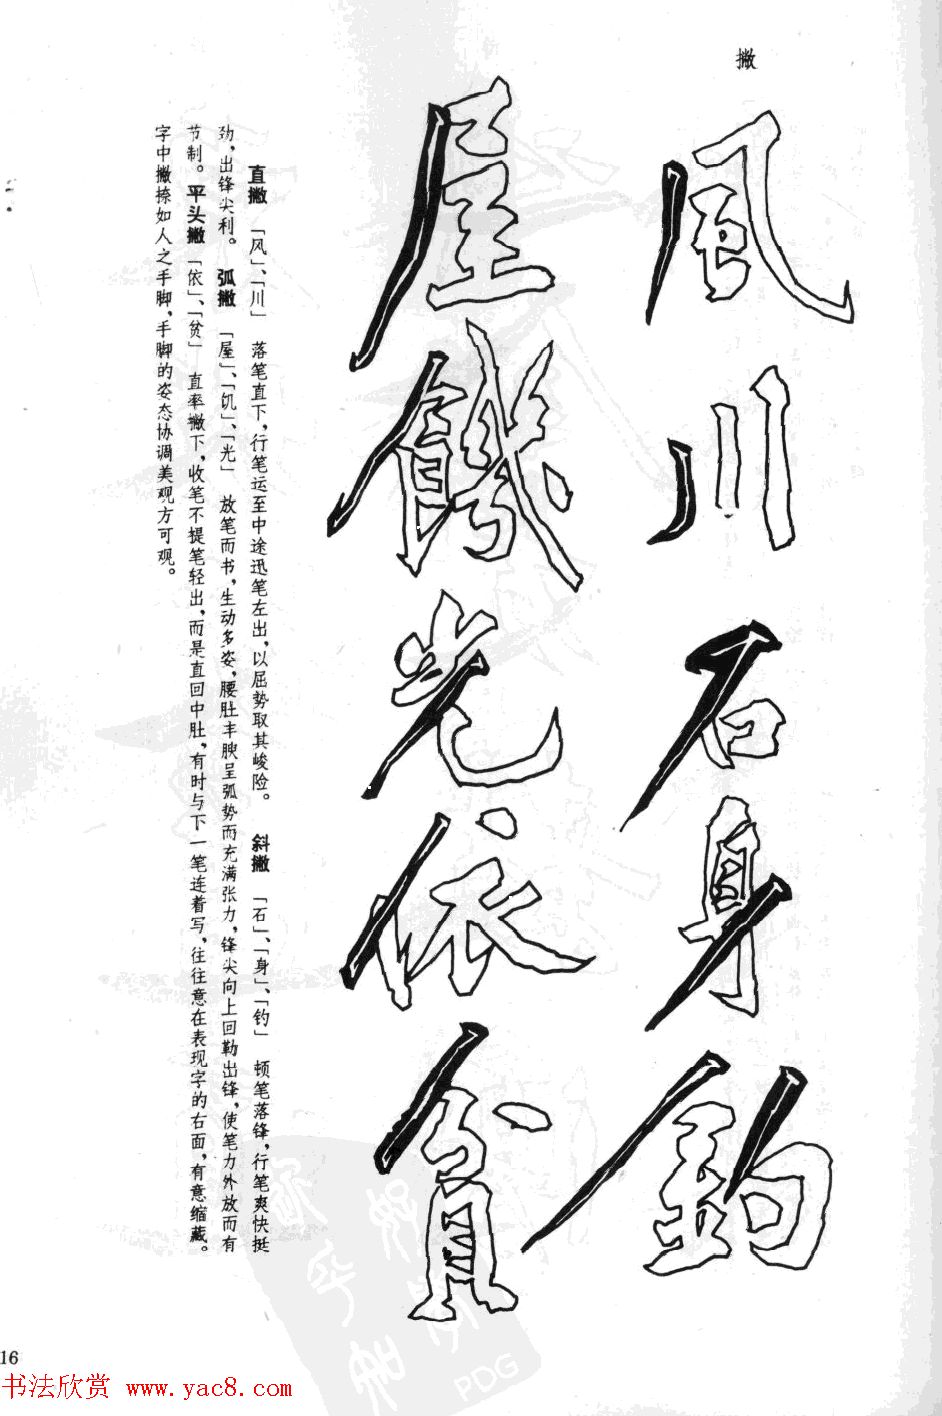 撇
风川石身钓
屋饑光依贫
直撇 「风」、「川」 落笔直下，行笔运至中途迅笔左出，以屈势取其峻险。 斜撇 「石」、「身」、「钓」 顿笔落锋，行笔爽快挺
劲，出锋尖利。 弧撇 「屋」、「饥」、「光」 放笔而书，生动多姿，腰肚丰腴呈弧势而充满张力，锋尖向上回勒出锋，使笔力外放而有
节制。 平头撇 「依」、「贫」 直率撇下，收笔不提笔轻出，而是直回中肚，有时与下一笔连着写，往往意在表现字的右面，有意缩藏。
字中撇捺如人之手脚，手脚的姿态协调美观方可观。
16
书法欣赏 www.yac8.com
PDG